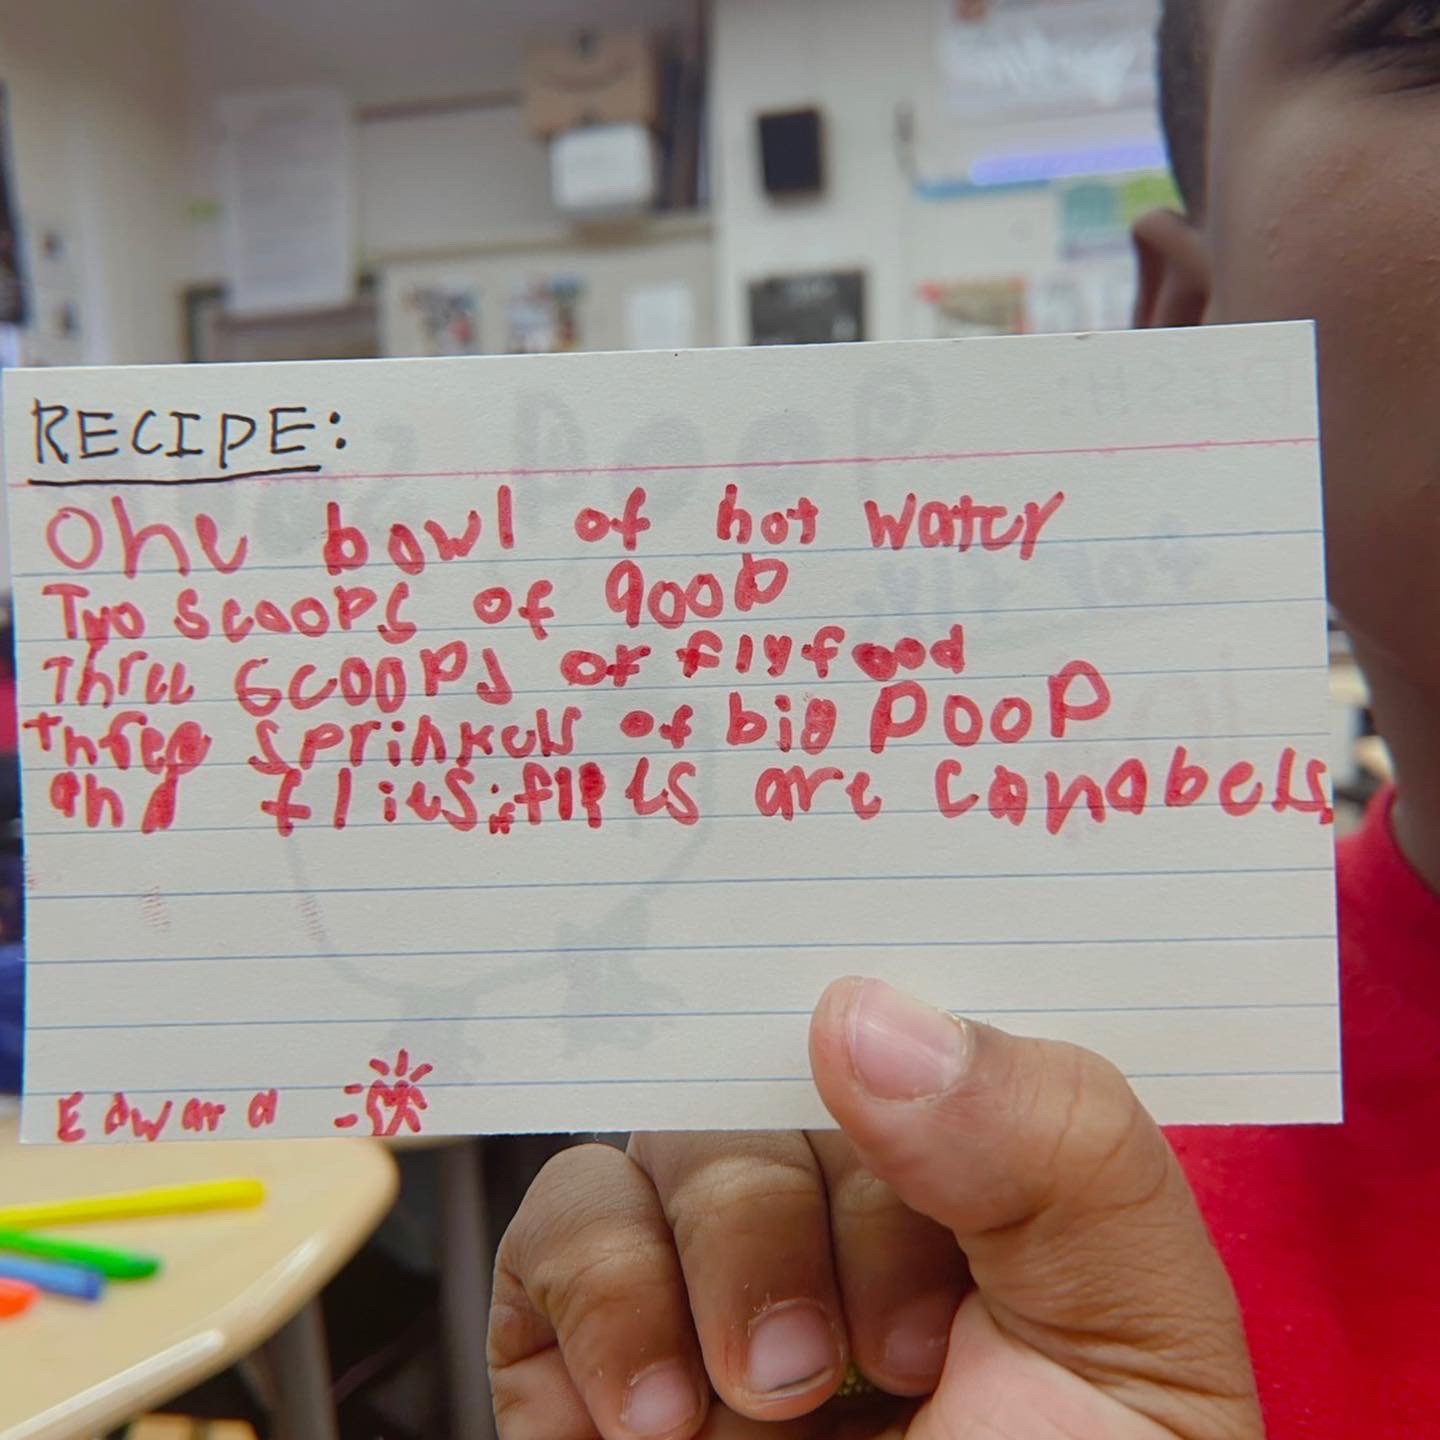 RECIPE:
One bowl of hot water
Two scoops of goob
Three scoops of flyfood
three sprinkels of big poop
and flies. flies are canabels
Edward